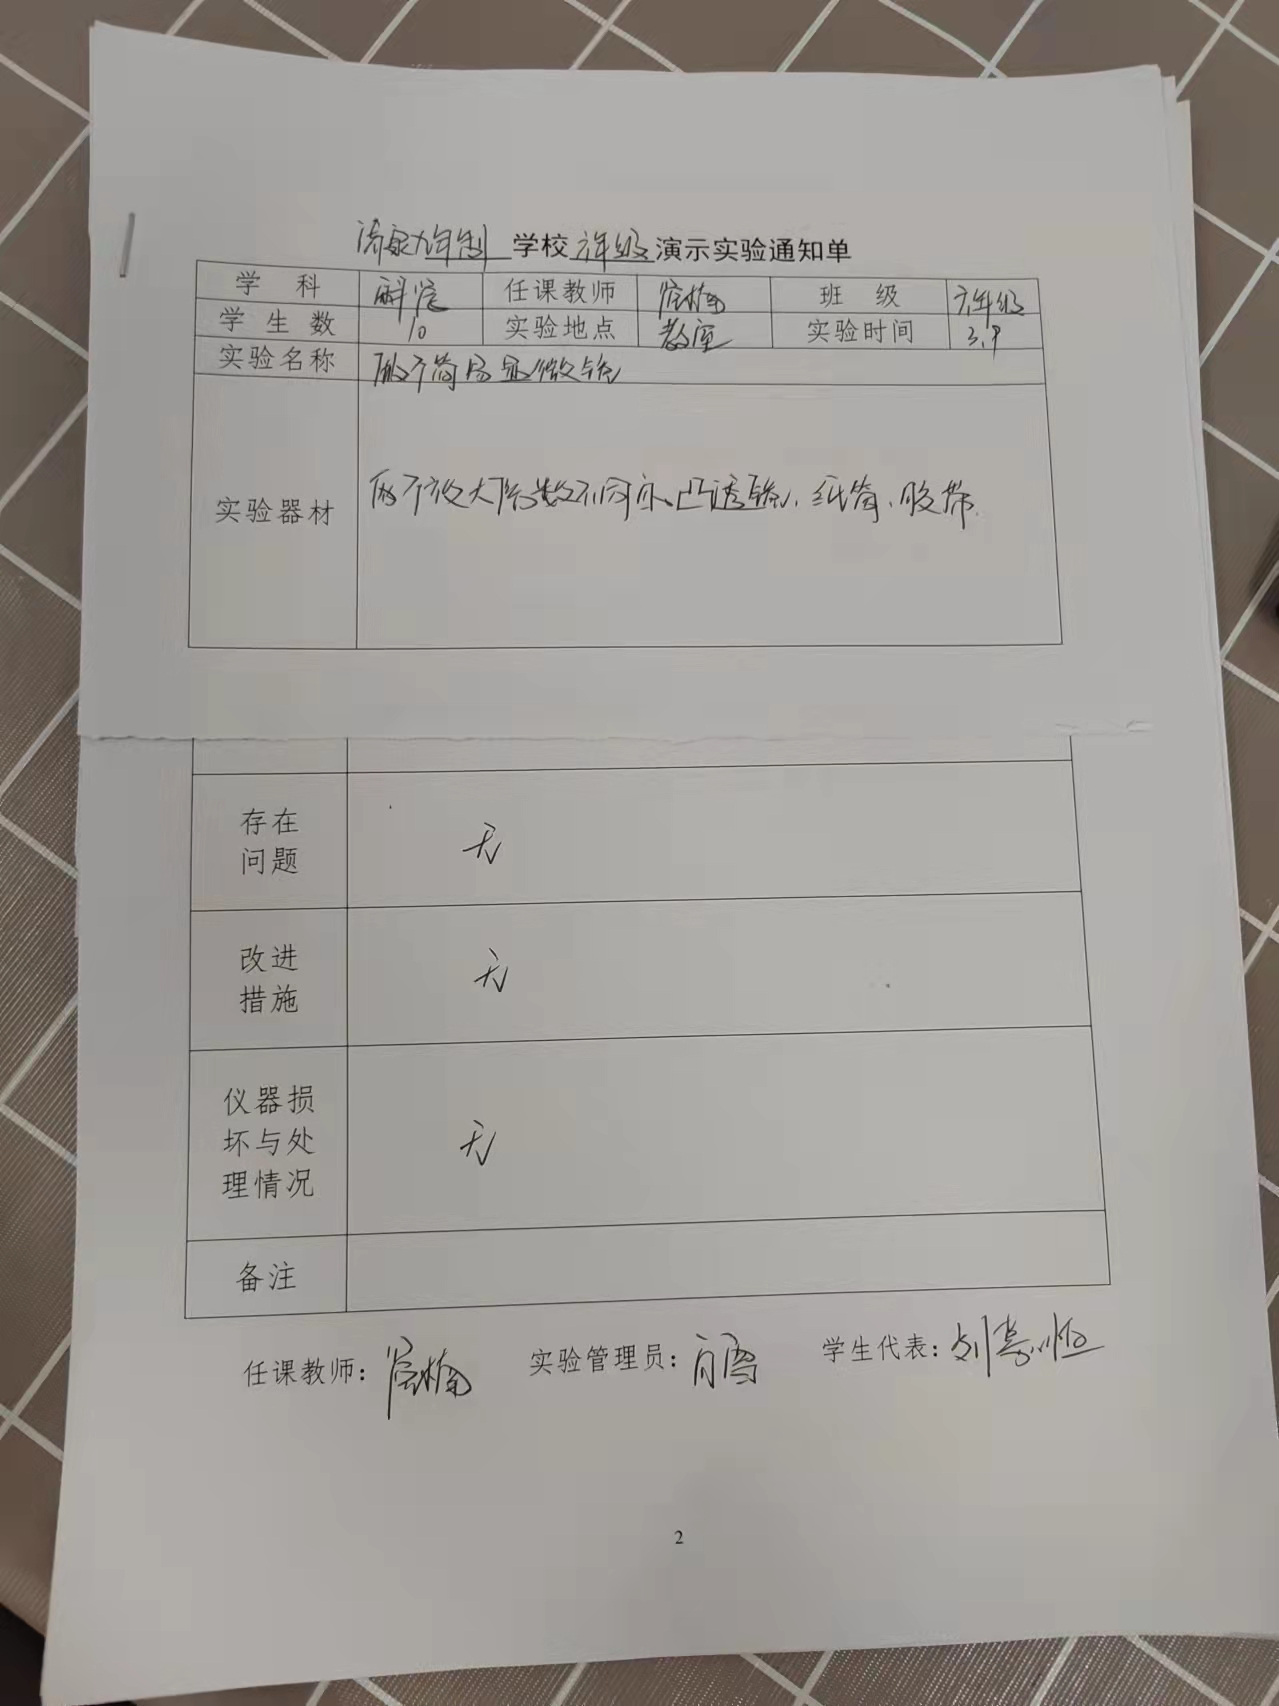 清泉九年制 学校 六年级 演示实验通知单
学 科 科学 任课教师 班 级 六年级
学 生 数 10 实验地点 教室 实验时间 3.9
实验名称 做个简易显微镜
实验器材 两个放大倍数不同的凸透镜、纸筒、胶带.
存在
问题 无
改进
措施 无
仪器损
坏与处
理情况 无
备注
任课教师: 实验管理员: 学生代表: 刘
2